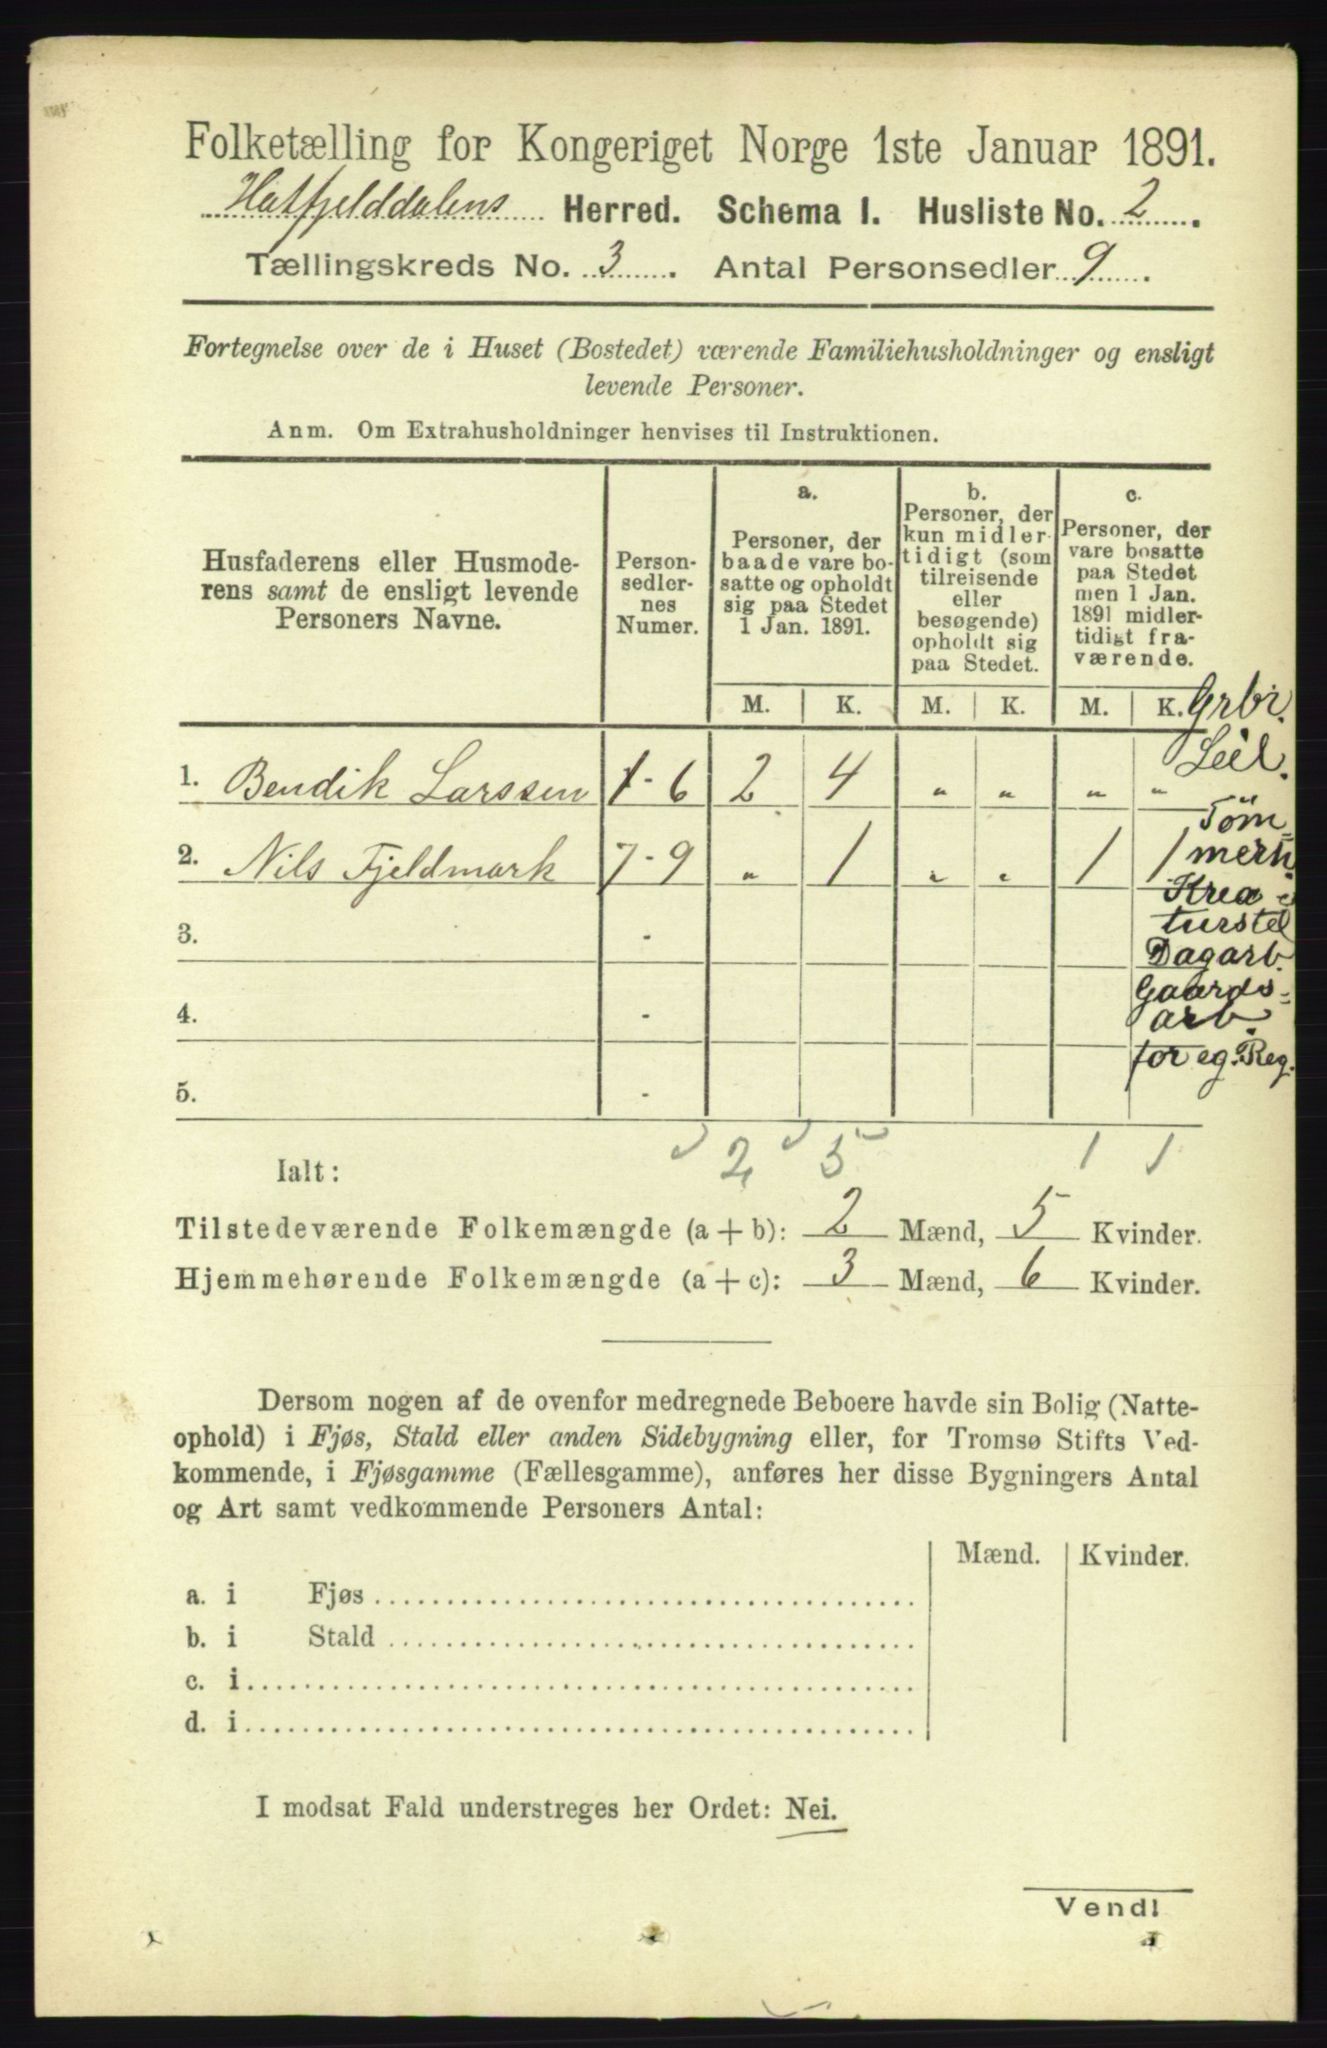 Folketælling for Kongeriget Norge 1ste Januar 1891.
Hatfjelddalens Herred. Schema I. Husliste No. 2.
Tællingskreds No. 3. Antal Personsedler 9.
Fortegnelse over de i Huset (Bostedet) værende Familiehusholdninger og ensligt
levende Personer.
Anm. Om Extrahusholdninger henvises til Instruktionen.
Husfaderens eller Husmode-
rens samt de ensligt levende
Personers Navne.
Person-
sedler-
nes
Numer.
a.
Personer, der
baade vare bo-
satte og opholdt
sig paa Stedet
1 Jan. 1891.
b.
Personer, der
kun midler-
tidigt (som
tilreisende
eller
besøgende)
opholdt sig
paa Stedet.
c.
Personer, der
vare bosatte
paa Stedet
men 1 Jan.
1891 midler-
tidigt fra-
værende.
M. K. M. K. M. K.
1. Bendik Larssen 1-6 2 4 " " " "
2. Nils Fjeldmark 7-9 " 1 " " 1 1
3. -
4. -
5. -
Grbr.
Leil.
Töm-
merh.
Krea-
turstel
Dagarb.
Gaards-
arb.
for eg. Reg.
2 5 1 1
Ialt:
Tilstedeværende Folkemængde (a + b): 2 Mænd, 5 Kvinder.
Hjemmehørende Folkemængde (a + c): 3 Mænd, 6 Kvinder.
Dersom nogen af de ovenfor medregnede Beboere havde sin Bolig (Natte-
ophold) i Fjøs, Stald eller anden Sidebygning eller, for Tromsø Stifts Ved-
kommende, i Fjøsgamme (Fællesgamme), anføres her disse Bygningers Antal
og Art samt vedkommende Personers Antal:
Mænd. Kvinder.
a. i Fjøs
b. i Stald
c. i
d. i
I modsat Fald understreges her Ordet: Nei.
Vend!